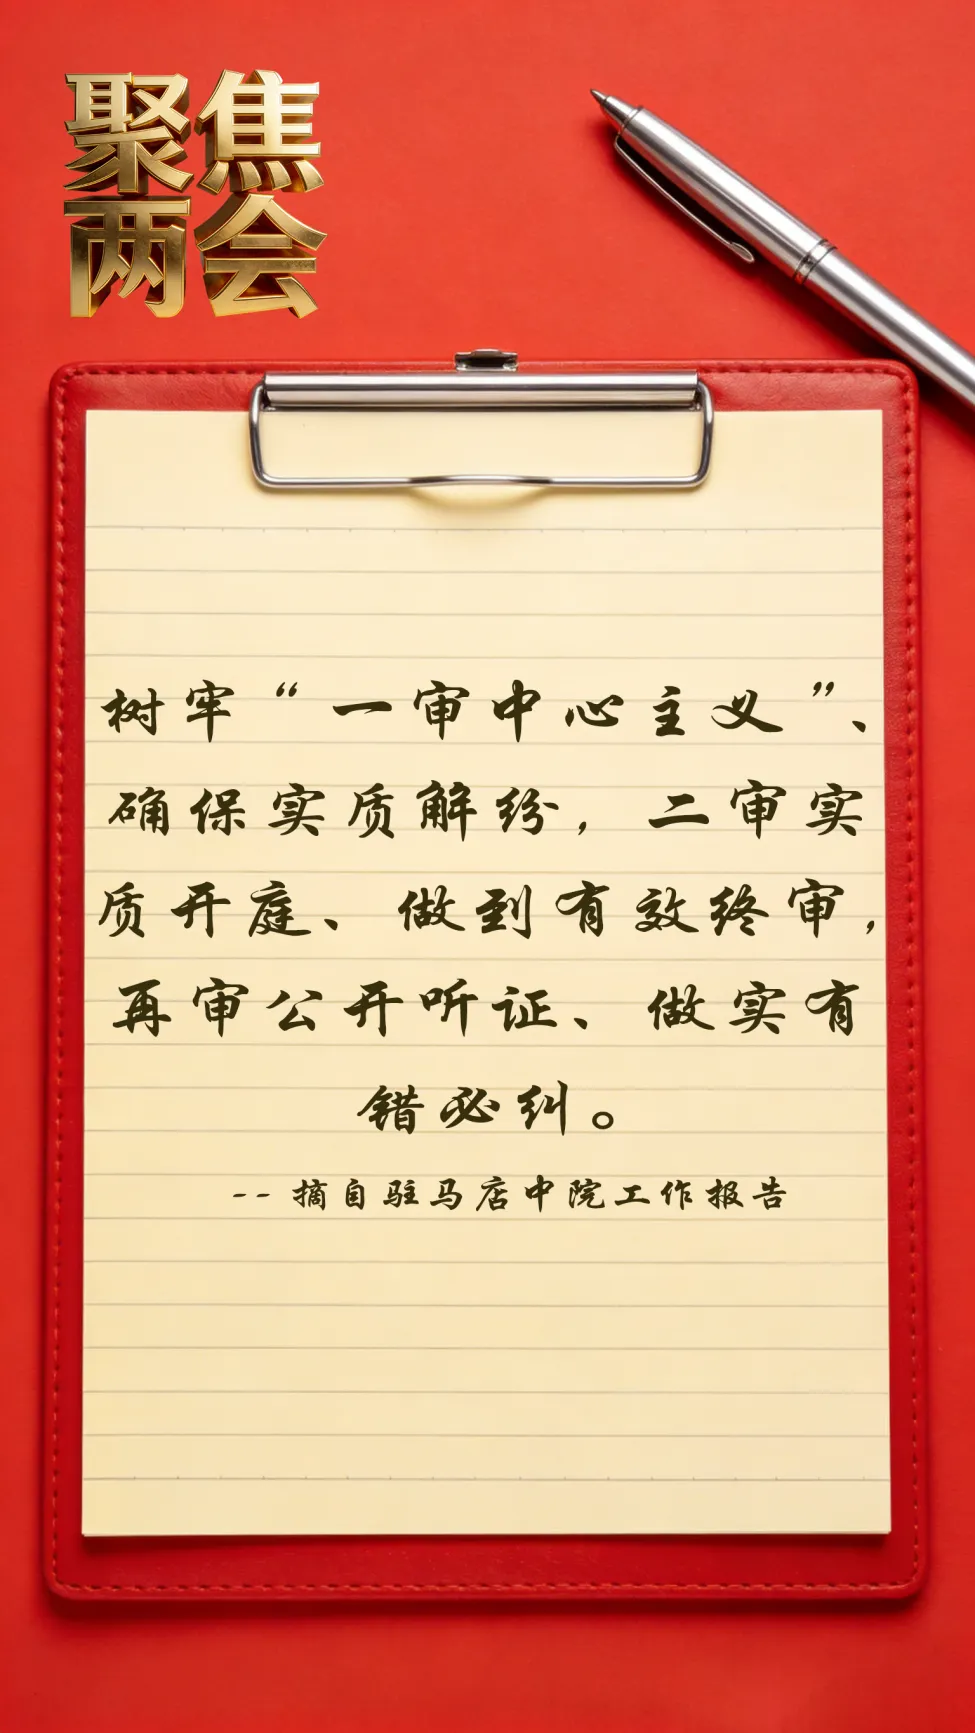 聚焦
两会
树牢“一审中心主义”、
确保实质解纷，二审实
质开庭、做到有效终审，
再审公开听证、做实有
错必纠。
--摘自驻马店中院工作报告